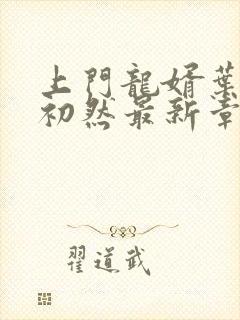 上門龍婿葉
初然最新章
翟道武